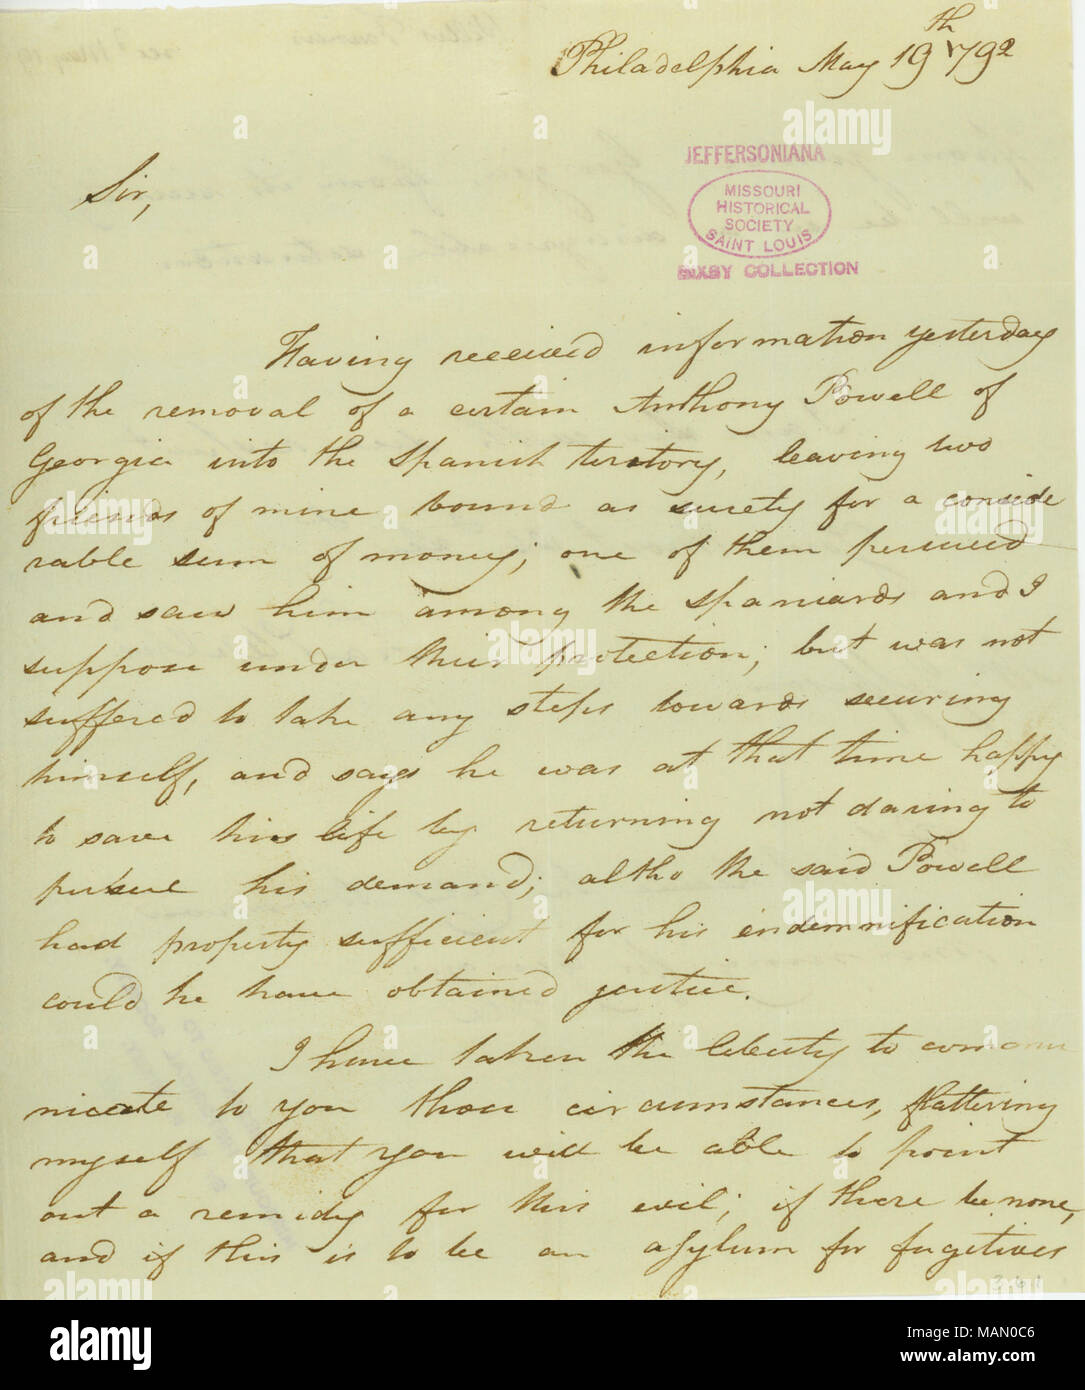 Philadelphia May 19th 1792
JEFFERSONIANA
MISSOURI
HISTORICAL
SOCIETY
SAINT LOUIS
BIXBY COLLECTION
Sir,
Having received information yesterday
of the removal of a certain Anthony Powell of
Georgia into the Spanish territory, leaving two
friends of mine bound as surety for a conside
rable sum of money; one of them persued
and saw him among the Spaniards and I
suppose under their protection; but was not
suffered to take any steps towards securing
himself, and says he was at that time happy
to save his life by returning not daring to
pursue his demand; altho the said Powell
had property sufficient for his indemnification
could he have obtained justice.
I have taken the liberty to commu
nicate to you those circumstances, flattering
myself that you will be able to point
out a remidy for this evil; if there be none,
and if this is to be an asylum for fugitives
alamy
Image ID: MAN0C6
www.alamy.com